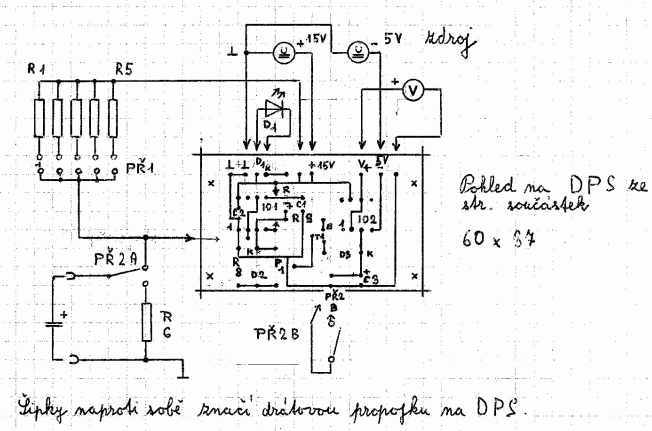 ⊥ + 15V - 5V zdroj
R1 R5
+ V
D1
PŘ1
⊥ ⊥ D1 K + 15V V+ 5V
R
C2 IO1 + C1
R 9 1 IO2
1 T1
K P1 D3 K
R 8 D2 + C3
PŘ2
B
Pohled na DPS ze
str. součástek
60 x 87
PŘ2A
+ R
6
PŘ2B
Šipky naproti sobě značí drátovou propojku na DPS.